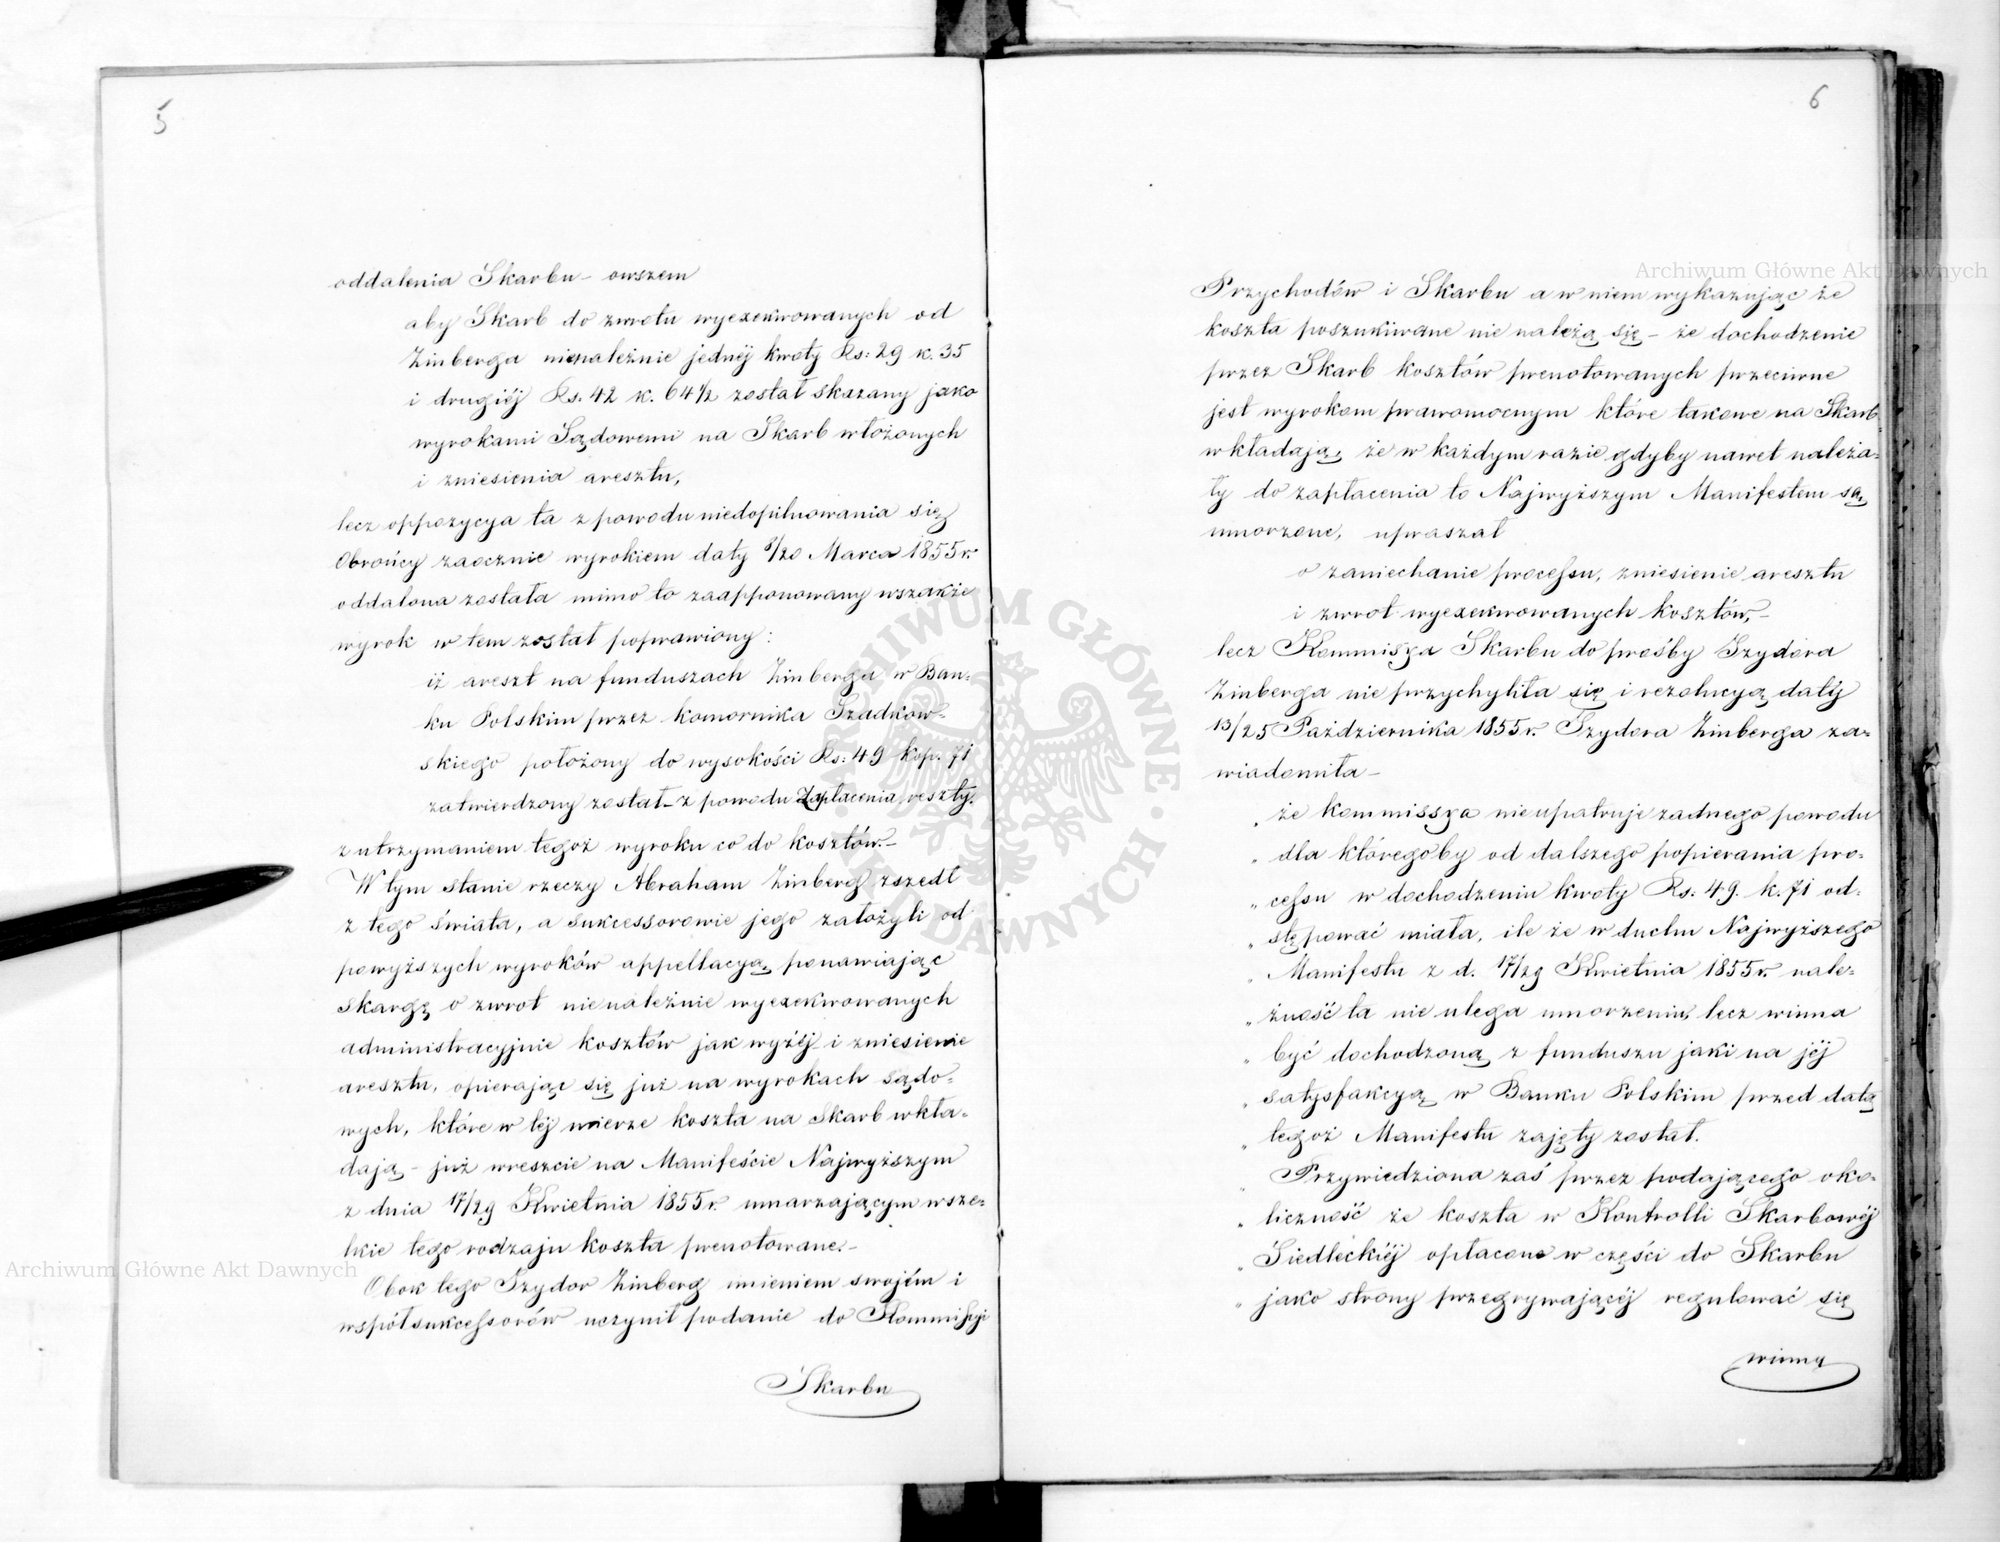 5
oddalenia Skarbu – owszem
aby Skarb do zwrotu wyexekwowanych od
Zinberga nienależnie jednéj kwoty Rs: 29 k. 35
i drugiéj Rs. 42 k. 64 1/2 został skazany jako
wyrokami Sądowemi na Skarb włożonych
i zniesienia aresztu,
lecz oppozycya ta z powodu niedopilnowania się
Obrońcy zaocznie wyrokiem daty 8/20 Marca 1855 r.
oddalona została mimo to zaapponowany wszakże
wyrok w tem został poprawiony:
iż areszt na funduszach Zinberga w Ban-
ku Polskim przez komornika Szadkow-
skiego położony do wysokości Rs: 49 kop. 71
zatwierdzony został – z powodu Zapłacenia reszty.
z utrzymaniem tegoż wyroku co do kosztów. –
W tym stanie rzeczy Abraham Zinberg zszedł
z tego świata, a sukcessorowie jego założyli od
powyższych wyroków appellacyą, ponawiając
skargę o zwrot nienależnie wyexekwowanych
administracyjnie kosztów jak wyżéj i zniesienie
aresztu, opierając się już na wyrokach sądo-
wych, które w téj mierze koszta na Skarb wkła-
dają – już wreszcie na Manifeście Najwyższym
z dnia 17/29 Kwietnia 1855 r. umarzającym wsze-
lkie tego rodzaju koszta prenotowane. –
Obok tego Izydor Zinberg imieniem swojém i
współsukcessorów uczynił podanie do Kommissyi
Skarbu
6
Przychodów i Skarbu a w niem wykazując że
koszta poszukiwane nie należą się – że dochodzenie
przez Skarb kosztów prenotowanych przeciwne
jest wyrokom prawomocnym które takowe na Skarb
wkładają, że w każdym razie gdyby nawet należa-
ły do zapłacenia to Najwyższym Manifestem są
umorzone, upraszał
o zaniechanie processu, zniesienie aresztu
i zwrot wyexekwowanych kosztów, –
lecz Kommissya Skarbu do prośby Izydora
Zinberga nie przychyliła się i rezolucyą datéj
13/25 Października 1855 r. Izydora Zinberga za-
wiadomiła –
„ że kommissya nie upatruje żadnego powodu
„ dla któregoby od dalszego popierania pro-
„ cessu w dochodzeniu kwoty Rs: 49. k. 71 od-
„ stępować miała, ile że w duchu Najwyższego
„ Manifestu z d. 17/29 Kwietnia 1855 r. nale-
„ żność ta nie ulega umorzeniu, lecz winna
„ być dochodzoną z funduszu jaki na jéj
„ satysfakcyą w Banku Polskim przed datą
„ tegoż Manifestu zajęty został.
„ Przywiedziona zaś przez podającego oko-
„ liczność że koszta w Kontrolli Skarbowéj
„ Siedleckiéj opłacone w części do Skarbu
„ jako strony przegrywającéj regulować się
winny
Archiwum Główne Akt Dawnych
Archiwum Główne Akt Dawnych
ARCHIWUM GŁÓWNE AKT DAWNYCH